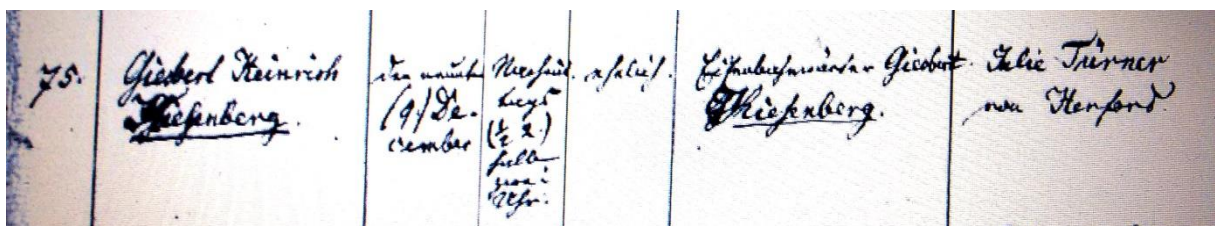 75.
Giesbert Heinrich
Kiesenberg.
den neunten
(9) De-
cember
Nachmit-
tags
(½ 2.)
halb
zwei
Uhr.
ehelich.
Eisenbahnwärter Giesbert
Kiesenberg.
Julie Türner
von Herford.